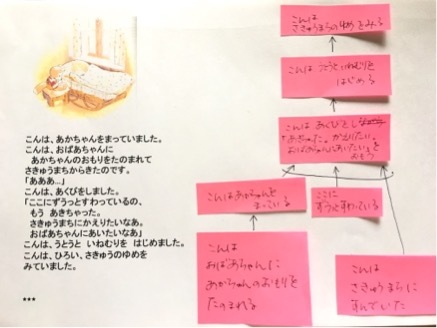 こんは、あかちゃんをまっていました。
こんは、おばあちゃんに
あかちゃんのおもりをたのまれて
さきゅうまちからきたのです。
「あああ…」
こんは、あくびをしました。
「ここにずうっとすわっているの、
もう あきちゃった。
さきゅうまちにかえりたいなあ。
おばあちゃんにあいたいなあ」
こんは、うとうと いねむりを はじめました。
こんは、ひろい、さきゅうのゆめを
みていました。
***
こんは
さきゅうまちのゆめをみる
こんは うとうと いねむりを
はじめる
こんは あくびをし
「あきちゃった。かえりたい。
おばあちゃんにあいたい」を
おもう
こんはあかちゃんを
まっている
ここに
ずうっとすわっている
こんは
おばあちゃんに
あかちゃんのおもりを
たのまれる
こんは
さきゅうまちに
すんでいた